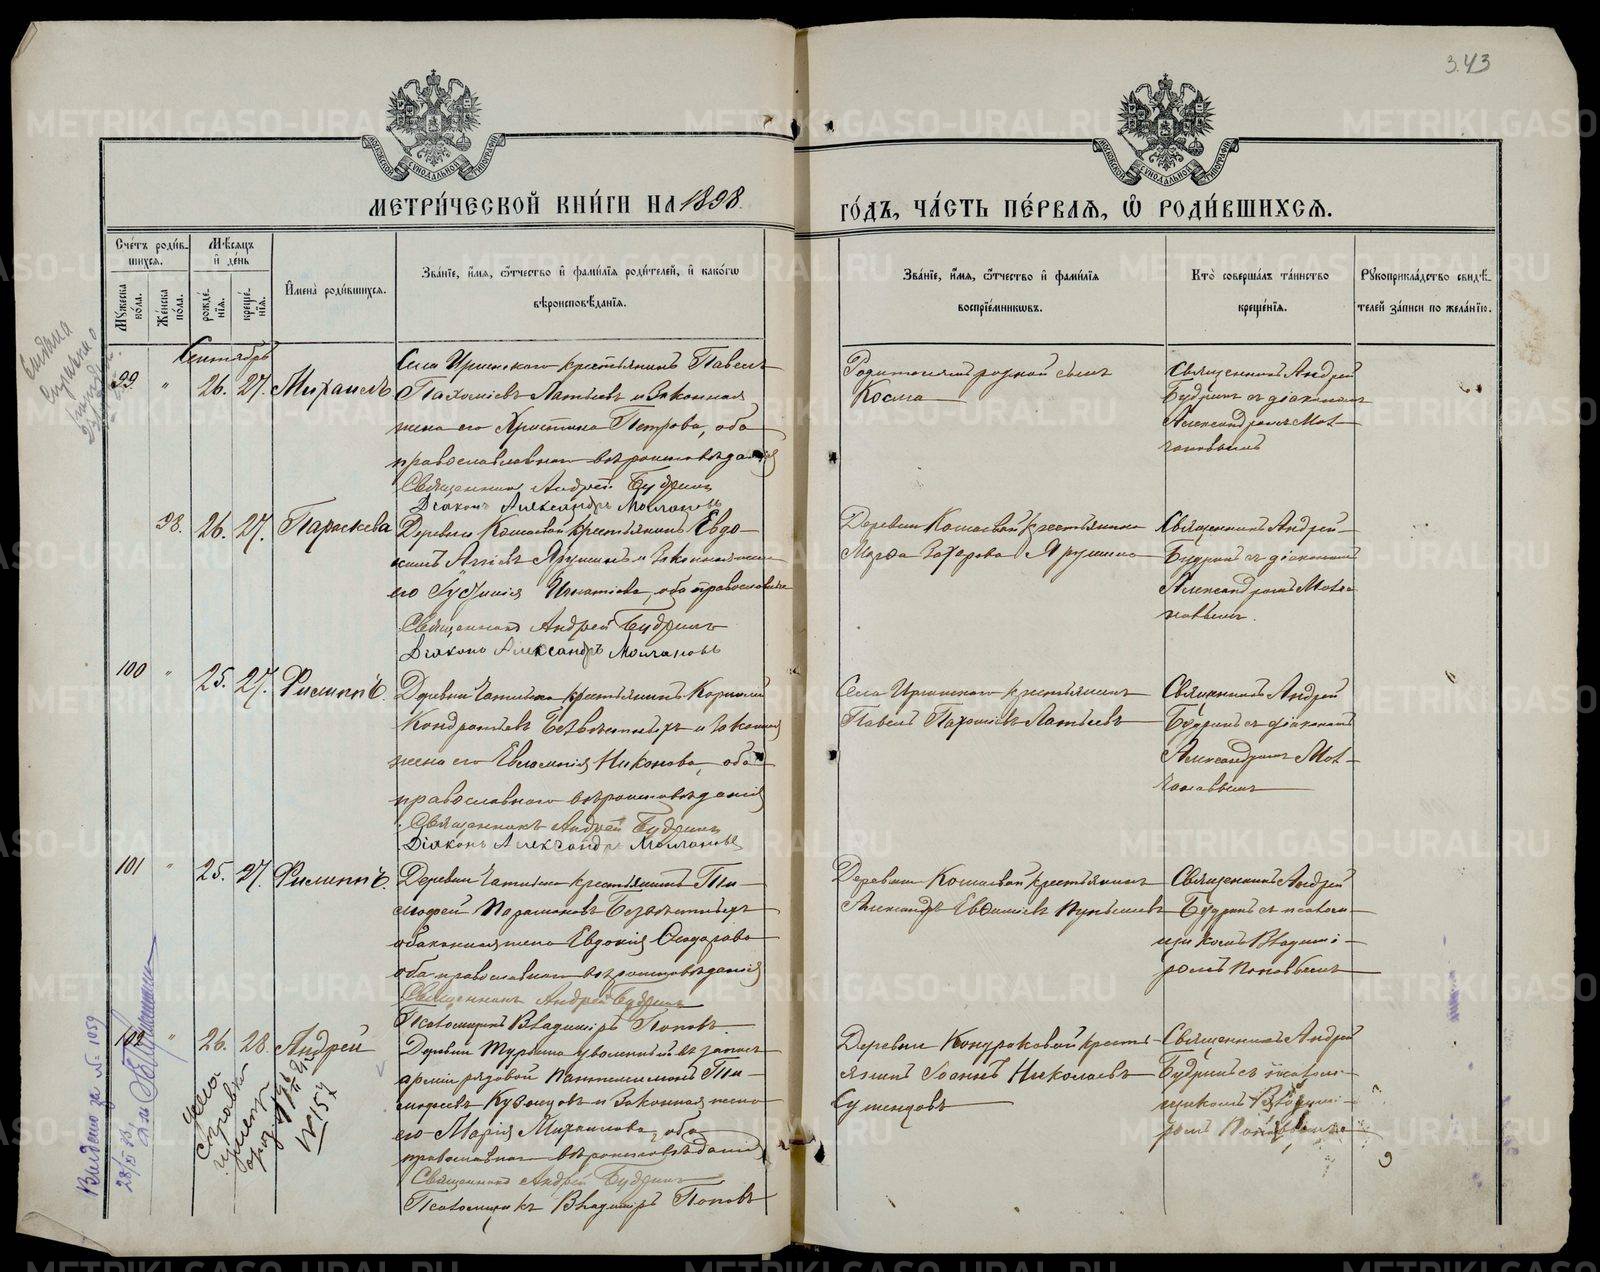 343
МЕТРИ́ЧЕСКОЙ КНИ́ГИ НА 1898
ГО́ДЪ, ЧА́СТЬ ПЕ́РВАѦ, Ѿ РОДИ́ВШИХСѦ.
Сче́тъ роди́в-
шихсѧ.
Мѣ́сѧцъ
и҆ де́нь
Мꙋ́жеска по́ла.
Же́нска по́ла.
рожде́-
нїѧ.
креще́-
нїѧ.
И҆мена̀ роди́вшихсѧ.
Зва́нїе, и҆́мѧ, ѻ҆́тчество и҆ фами́лїѧ роди́телей, и҆ како́гѡ
вѣроисповѣ́данїѧ.
Зва́нїе, и҆́мѧ, ѻ҆́тчество и҆ фами́лїѧ
воспрїе́мникѡвъ.
Кто̀ соверша́лъ та́инство
креще́нїѧ.
Рꙋкоприкла́дство свидѣ́-
телей за́писи по жела́нїю.
Сентябрь
99 " 26. 27. Михаилъ
Села Иргинскаго крестьянинъ Павелъ
Пахомiевъ Латыевъ и законная
жена его Христина Петрова, оба
православнаго вѣроисповѣданiя
Священникъ Андрей Будринъ
Дiаконъ Александръ Молчановъ
Родителямъ родной сынъ
Косма
Священникъ Андрей
Будринъ съ дiакономъ
Александромъ Мол-
чановымъ
98. 26. 27. Параскева
Деревни Кошаевой крестьянинъ Евдо-
кимъ Ярушинъ и законная жена
его Игнатiева, оба православные
Священникъ Андрей Будринъ
Дiаконъ Александръ Молчановъ
Деревни Кошаевой крестьянка
Захарова Ярушина
Священникъ Андрей
Будринъ съ дiакономъ
Александромъ Молча-
новымъ.
100 " 25. 27. Филиппъ.
Деревни крестьянинъ Корнилiй
Кондратьевъ Безвѣстныхъ и законная
жена его Евлампiя Никонова, оба
православнаго вѣроисповѣданiя
Священникъ Андрей Будринъ
Дiаконъ Александръ Молчановъ
Села Иргинскаго крестьянинъ
Павелъ Пахомiевъ Латыевъ
Священникъ Андрей
Будринъ съ дiакономъ
Александромъ Мол-
чановымъ
101 " 25. 27. Филиппъ.
Деревни крестьянинъ Ти-
мофей Парамоновъ Безвѣстныхъ
и законная жена Евдокiя
оба православнаго вѣроисповѣданiя
Священникъ Андрей Будринъ
Псаломщикъ Владимiръ Поповъ
Деревни Кошаевой крестьянинъ
Александръ Евфимiевъ
Священникъ Андрей
Будринъ съ псалом-
щикомъ Владимi-
ромъ Поповымъ
102 " 26. 28. Андрей
Деревни уволенный въ запасъ
армiи рядовой Пантелеимонъ Ти-
мофеевъ Кузнецовъ и законная жена
его Марiя Михаилова, оба
православнаго вѣроисповѣданiя
Священникъ Андрей Будринъ
Псаломщикъ Владимiръ Поповъ
Деревни Кондраковой кресть-
янинъ Iоаннъ Николаевъ
Священникъ Андрей
Будринъ съ псалом-
щикомъ Владимi-
ромъ Поповымъ
Выдано за № 1059
№ 157
METRIKI.GASO-URAL.RU